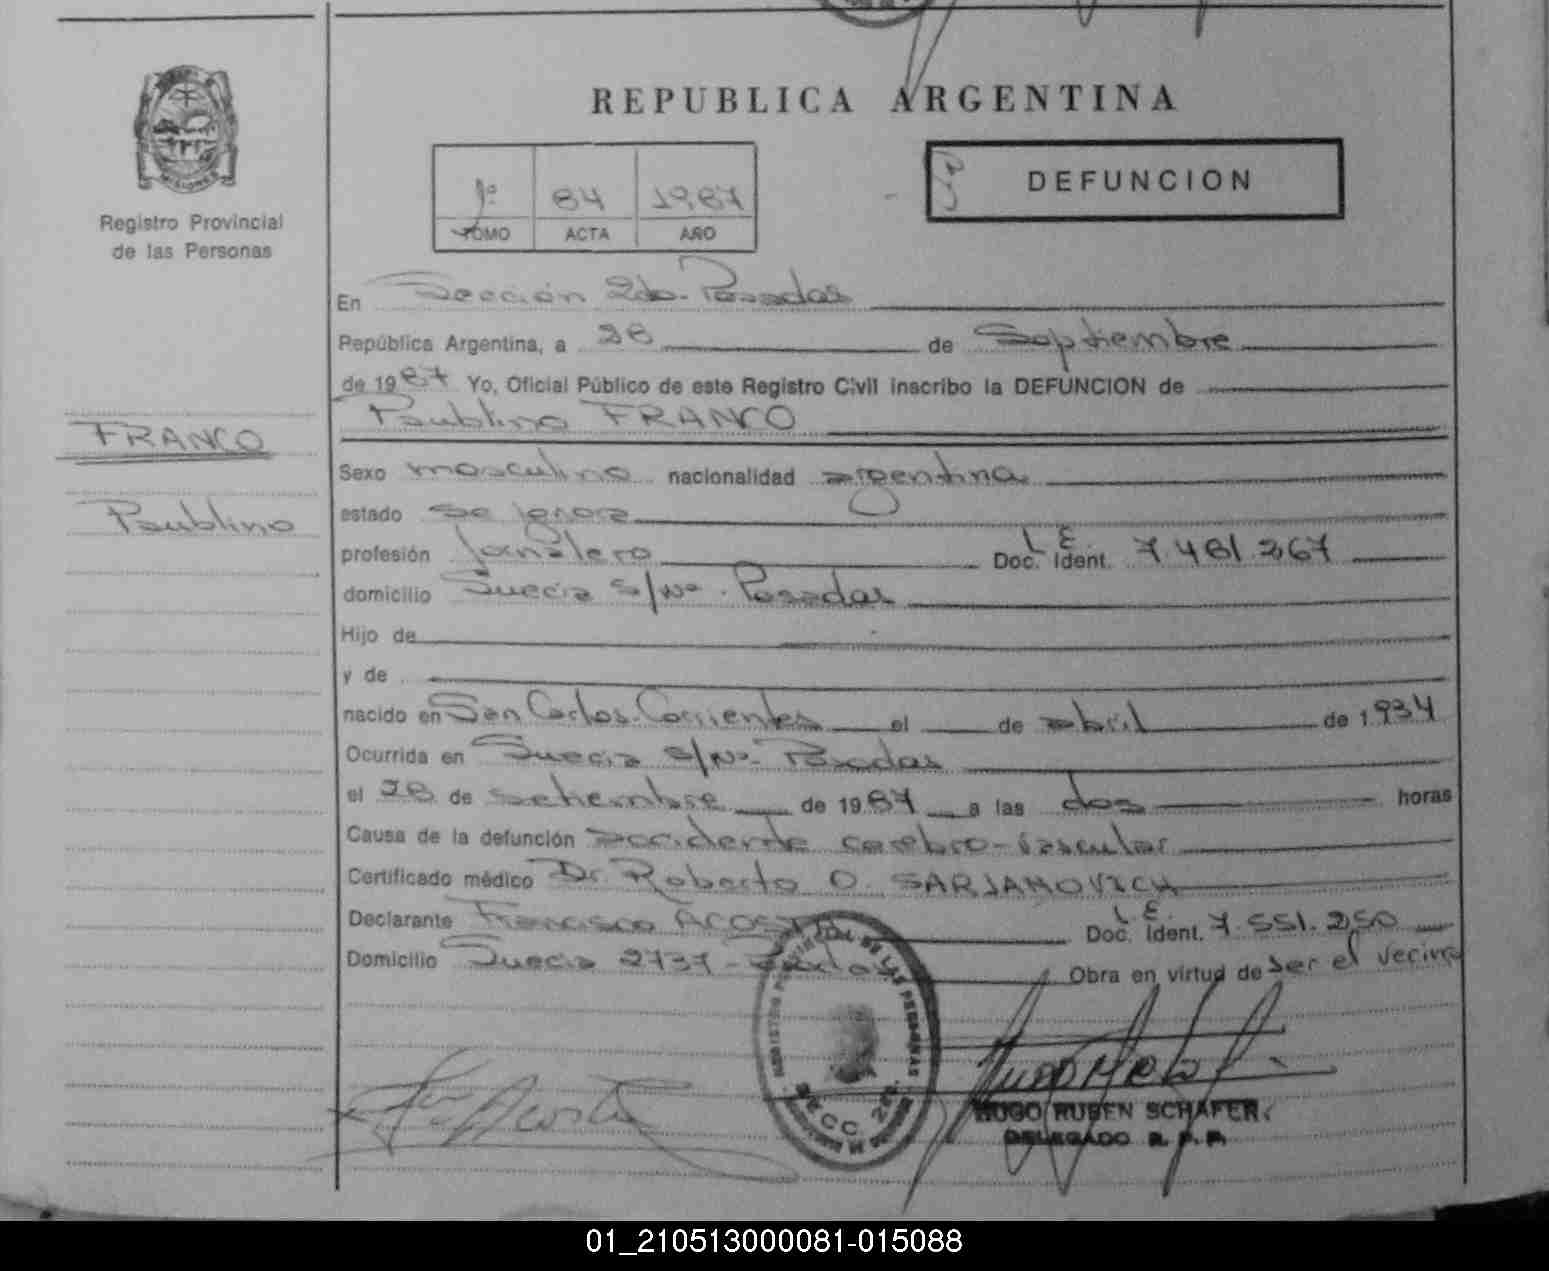 REPUBLICA ARGENTINA
MISIONES
Registro Provincial
de las Personas
1º 84 1987
TOMO ACTA AÑO
DEFUNCION
En Sección 2da. Posadas
República Argentina, a 28 de Septiembre
de 1987 Yo, Oficial Público de este Registro Civil inscribo la DEFUNCION de
Paublino FRANCO
FRANCO
Paublino
Sexo masculino nacionalidad argentina
estado se ignora
profesión jornalero Doc. Ident. L.E. 7.481.267
domicilio Suecia s/Nº. Posadas
Hijo de
y de
nacido en San Carlos. Corrientes el de abril de 1.934
Ocurrida en Suecia s/Nº. Posadas
el 28 de setiembre de 1987 a las dos horas
Causa de la defunción accidente cerebro-vascular
Certificado médico Dr. Roberto O. SARJANOVICH
Declarante Francisco ACOSTA Doc. Ident. L.E. 7.551.250
Domicilio Suecia 2737 - Posadas Obra en virtud de ser el vecino
REGISTRO PROVINCIAL DE LAS PERSONAS
SECC. 2da.
HUGO RUBEN SCHAFER
DELEGADO R. P. P.
01_210513000081-015088